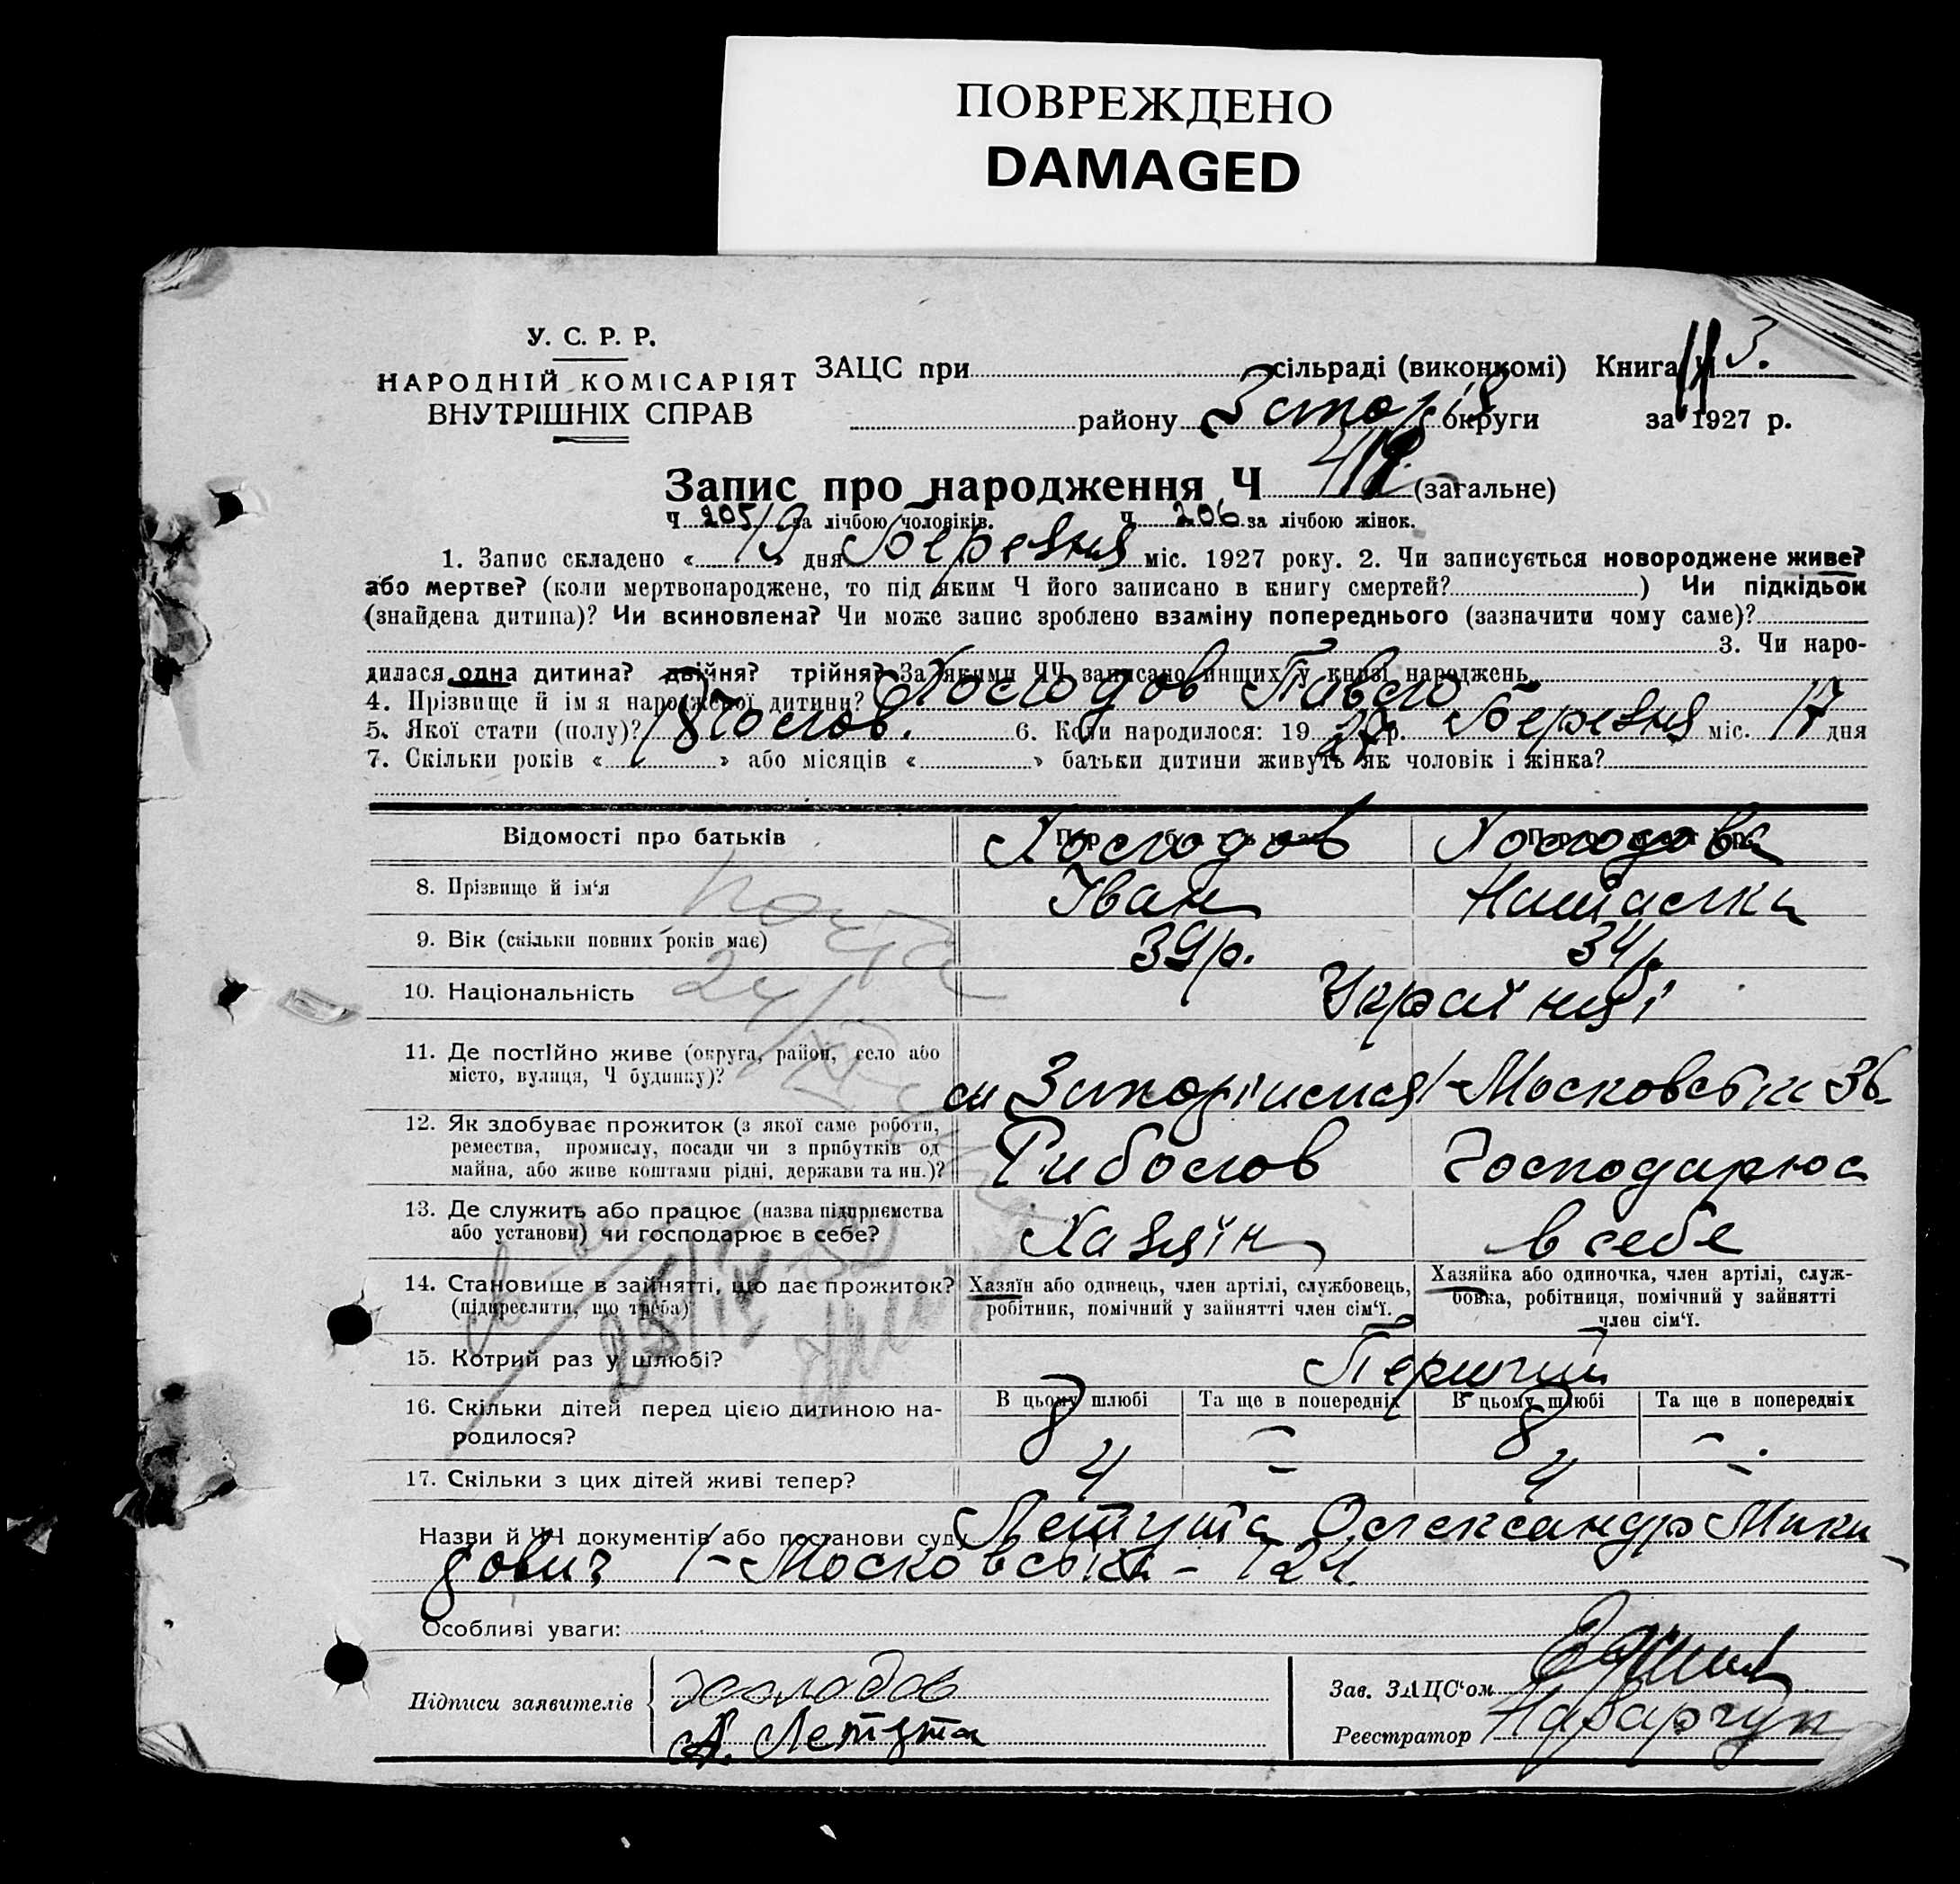 ПОВРЕЖДЕНО
DAMAGED
У. С. Р. Р.
НАРОДНІЙ КОМІСАРІЯТ
ВНУТРІШНІХ СПРАВ
ЗАЦС при сільраді (виконкомі) Книга Ч 3.
району округи за 1927 р.
Запис про народження Ч (загальне)
Ч 205 за лічбою чоловіків. Ч 206 за лічбою жінок.
1. Запис складено « 19 » дня Березня міс. 1927 року. 2. Чи записується новороджене живе?
або мертве? (коли мертвонароджене, то під яким Ч його записано в книгу смертей? ) Чи підкідьок
(знайдена дитина)? Чи всиновлена? Чи може запис зроблено взаміну попереднього (зазначити чому саме)?
3. Чи наро-
дилася одна дитина? двійня? трійня? За якими ЧЧ записано инших у книзі народжень
4. Прізвище й ім я народженої дитини? Холодов Павло
5. Якої стати (полу)? Чолов. 6. Коли народилося: 19 27 р. Березня міс. 17 дня
7. Скільки років « » або місяців « » батьки дитини живуть як чоловік і жінка?
Відомості про батьків Холодов Холодова
8. Прізвище й ім‘я Іван Наталка
9. Вік (скільки повних років має) 39 р. 34 р.
10. Національність Українці
11. Де постійно живе (округа, район, село або
місто, вулиця, Ч будинку)? Московська 36
12. Як здобуває прожиток (з якої саме роботи,
ремества, промислу, посади чи з прибутків од
майна, або живе коштами рідні, держави та ин.)? Риболов Господарює
13. Де служить або працює (назва підприємства
або установи) чи господарює в себе? Хазяїн в себе
14. Становище в зайнятті, що дає прожиток?
(підкреслити, що треба)
Хазяїн або одинець, член артілі, службовець,
робітник, помічний у зайнятті член сім‘ї.
Хазяйка або одиночка, член артілі, служ-
бовка, робітниця, помічний у зайнятті
член сім‘ї.
15. Котрий раз у шлюбі? Перший
16. Скільки дітей перед цією дитиною на-
родилося?
В цьому шлюбі Та ще в попередніх В цьому шлюбі Та ще в попередніх
8 – 8 –
17. Скільки з цих дітей живі тепер? 4 – 4 –
Назви й ЧЧ документів або постанови суду Летута Олександр Мики
дович Московська – 124.
Особливі уваги:
Підписи заявителів Холодов
А. Летута
Зав. ЗАЦС‘ом
Реєстратор Назарчук